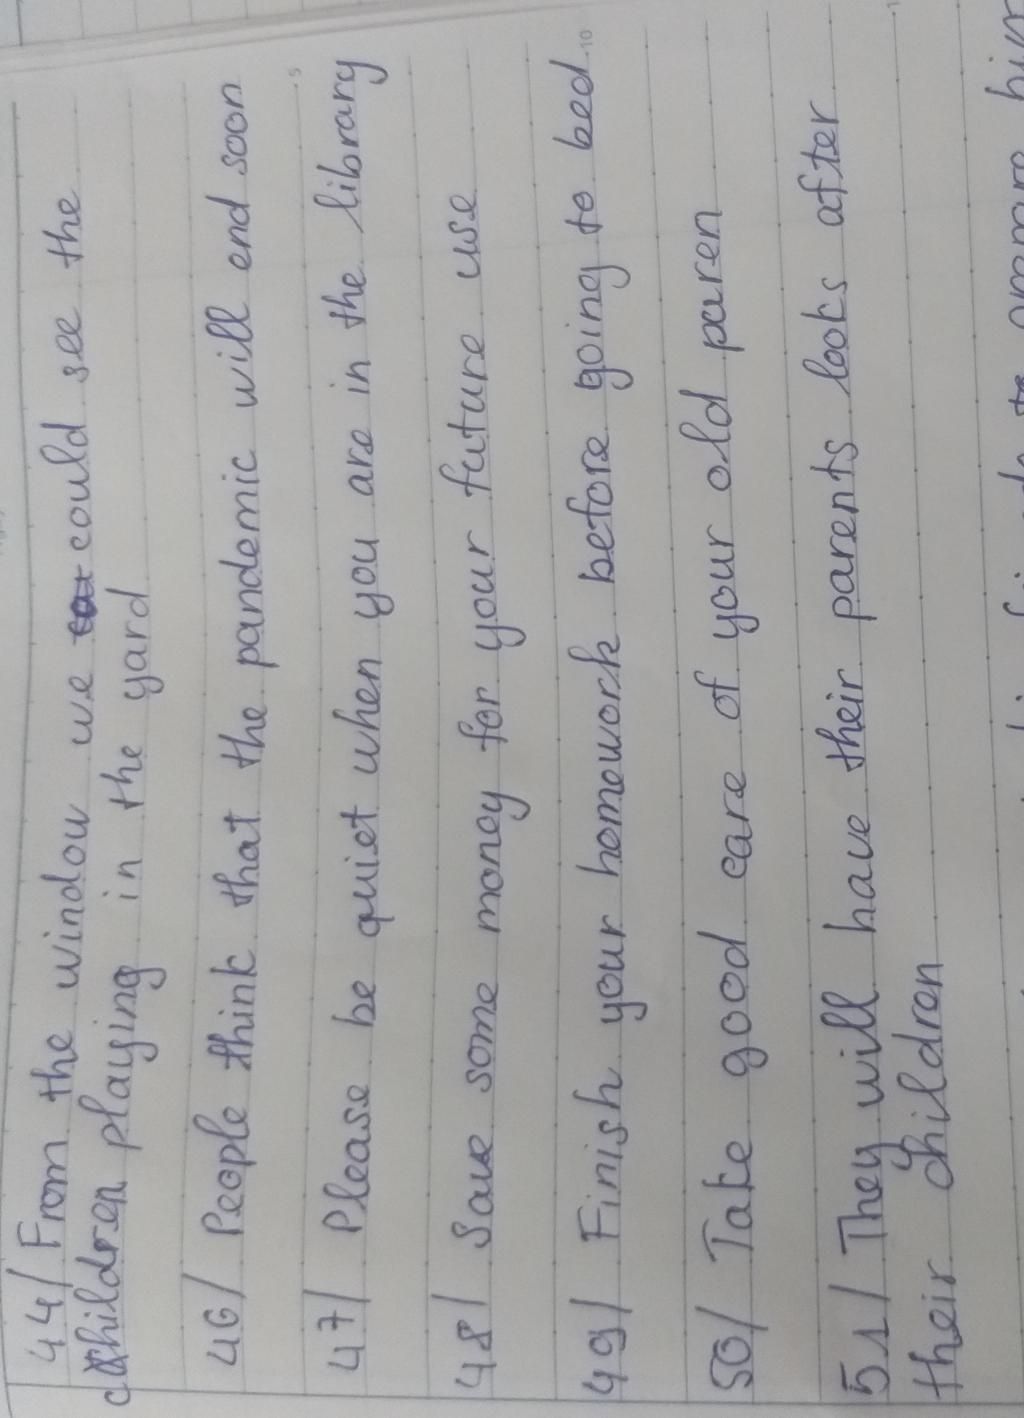 44/ From the window we could see the
children playing in the yard
46/ People think that the pandemic will end soon
47/ Please be quiet when you are in the library
48/ Save some money for your future use
49/ Finish your homework before going to bed
50/ Take good care of your old paren
51/ They will have their parents looks after
their children